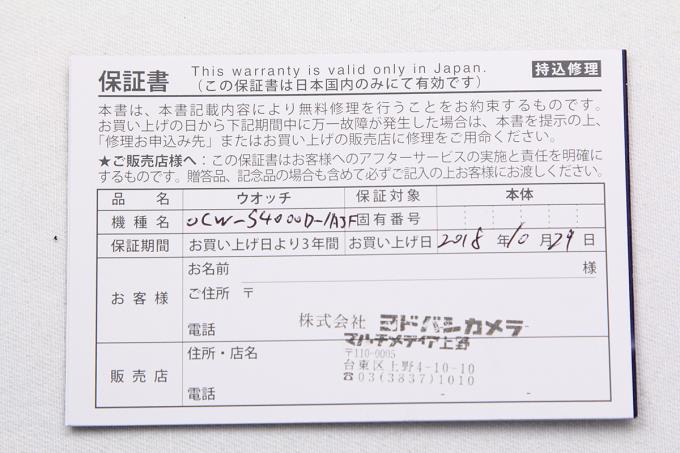 保証書 This warranty is valid only in Japan. 持込修理
(この保証書は日本国内のみにて有効です)
本書は、本書記載内容により無料修理を行うことをお約束するものです。
お買い上げの日から下記期間中に万一故障が発生した場合は、本書を提示の上、
「修理お申込み先」またはお買い上げの販売店に修理をご用命ください。
★ご販売店様へ:この保証書はお客様へのアフターサービスの実施と責任を明確に
するものです。贈答品、記念品の場合も含めて必ずご記入の上お客様にお渡しください。
品名 ウオッチ 保証対象 本体
機種名 OCW-S4000D-1AJF 固有番号
保証期間 お買い上げ日より3年間 お買い上げ日 2018年10月29日
お客様 お名前 様
ご住所 〒
電話
株式会社 ヨドバシカメラ
マルチメディア上野
販売店 住所・店名
〒110-0005
台東区上野4-10-10
☎03(3837)1010
電話 - -